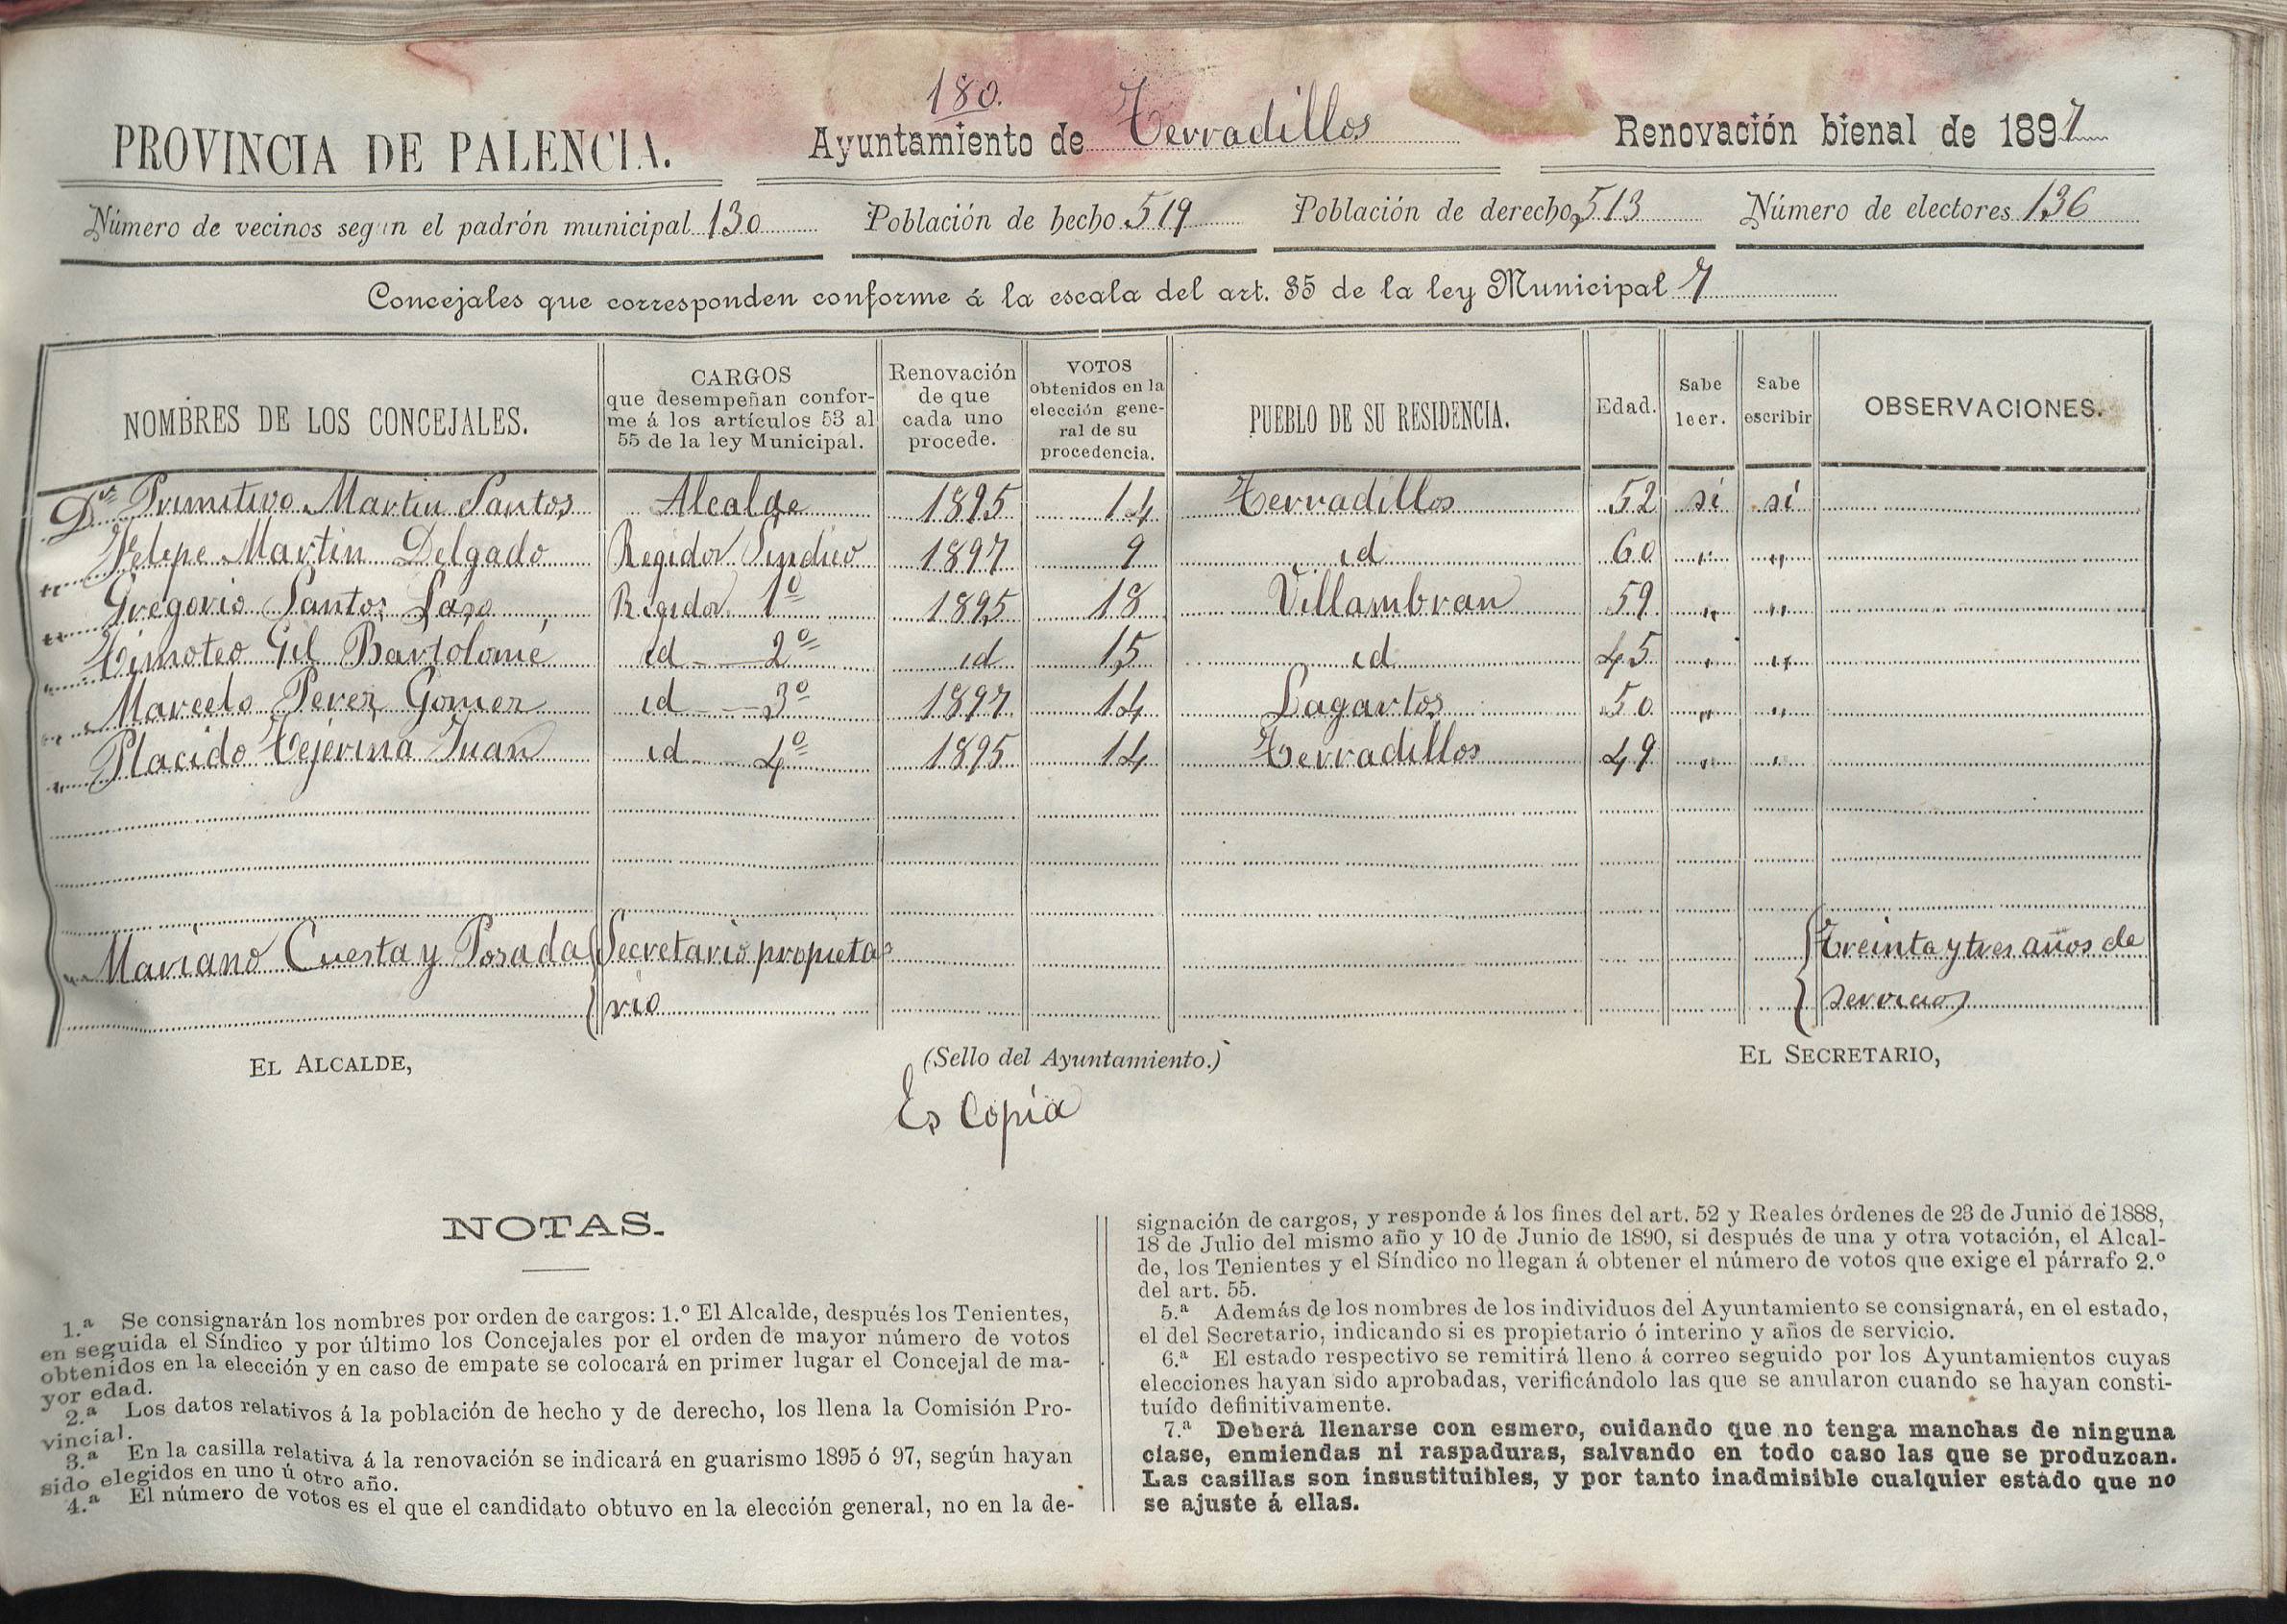 180.
PROVINCIA DE PALENCIA. Ayuntamiento de Terradillos Renovación bienal de 1897
Número de vecinos según el padrón municipal 130 Población de hecho 519 Población de derecho 513 Número de electores 136
Concejales que corresponden conforme á la escala del art. 35 de la ley Municipal 7
NOMBRES DE LOS CONCEJALES. CARGOS que desempeñan conforme á los artículos 53 al 55 de la ley Municipal. Renovación de que cada uno procede. VOTOS obtenidos en la elección general de su procedencia. PUEBLO DE SU RESIDENCIA. Edad. Sabe leer. Sabe escribir OBSERVACIONES.
Dn Primitivo Martin Santos Alcalde 1895 14 Terradillos 52 si si
" Felepe Martin Delgado Regidor Sindico 1897 9 id 60 " "
" Gregorio Santos Laso Regidor 1º 1895 18 Villambran 59 " "
" Timoteo Gil Bartolomé id 2º id 15 id 45 " "
" Marcelo Perez Gomez id 3º 1897 14 Lagartos 50 " "
" Placido Tejerina Juan id 4º 1895 14 Terradillos 49 " "
" Mariano Cuesta y Posada Secretario propieta Treinta y tres años de
rio servicios
EL ALCALDE, (Sello del Ayuntamiento.) EL SECRETARIO,
Es Copia
NOTAS.
1.ª Se consignarán los nombres por orden de cargos: 1.º El Alcalde, después los Tenientes,
en seguida el Síndico y por último los Concejales por el orden de mayor número de votos
obtenidos en la elección y en caso de empate se colocará en primer lugar el Concejal de ma-
yor edad.
2.ª Los datos relativos á la población de hecho y de derecho, los llena la Comisión Pro-
vincial.
3.ª En la casilla relativa á la renovación se indicará en guarismo 1895 ó 97, según hayan
sido elegidos en uno ú otro año.
4.ª El número de votos es el que el candidato obtuvo en la elección general, no en la de-
signación de cargos, y responde á los fines del art. 52 y Reales órdenes de 23 de Junio de 1888,
18 de Julio del mismo año y 10 de Junio de 1890, si después de una y otra votación, el Alcal-
de, los Tenientes y el Síndico no llegan á obtener el número de votos que exige el párrafo 2.º
del art. 55.
5.ª Además de los nombres de los individuos del Ayuntamiento se consignará, en el estado,
el del Secretario, indicando si es propietario ó interino y años de servicio.
6.ª El estado respectivo se remitirá lleno á correo seguido por los Ayuntamientos cuyas
elecciones hayan sido aprobadas, verificándolo las que se anularon cuando se hayan consti-
tuído definitivamente.
7.ª Deberá llenarse con esmero, cuidando que no tenga manchas de ninguna
clase, enmiendas ni raspaduras, salvando en todo caso las que se produzcan.
Las casillas son insustituibles, y por tanto inadmisible cualquier estado que no
se ajuste á ellas.